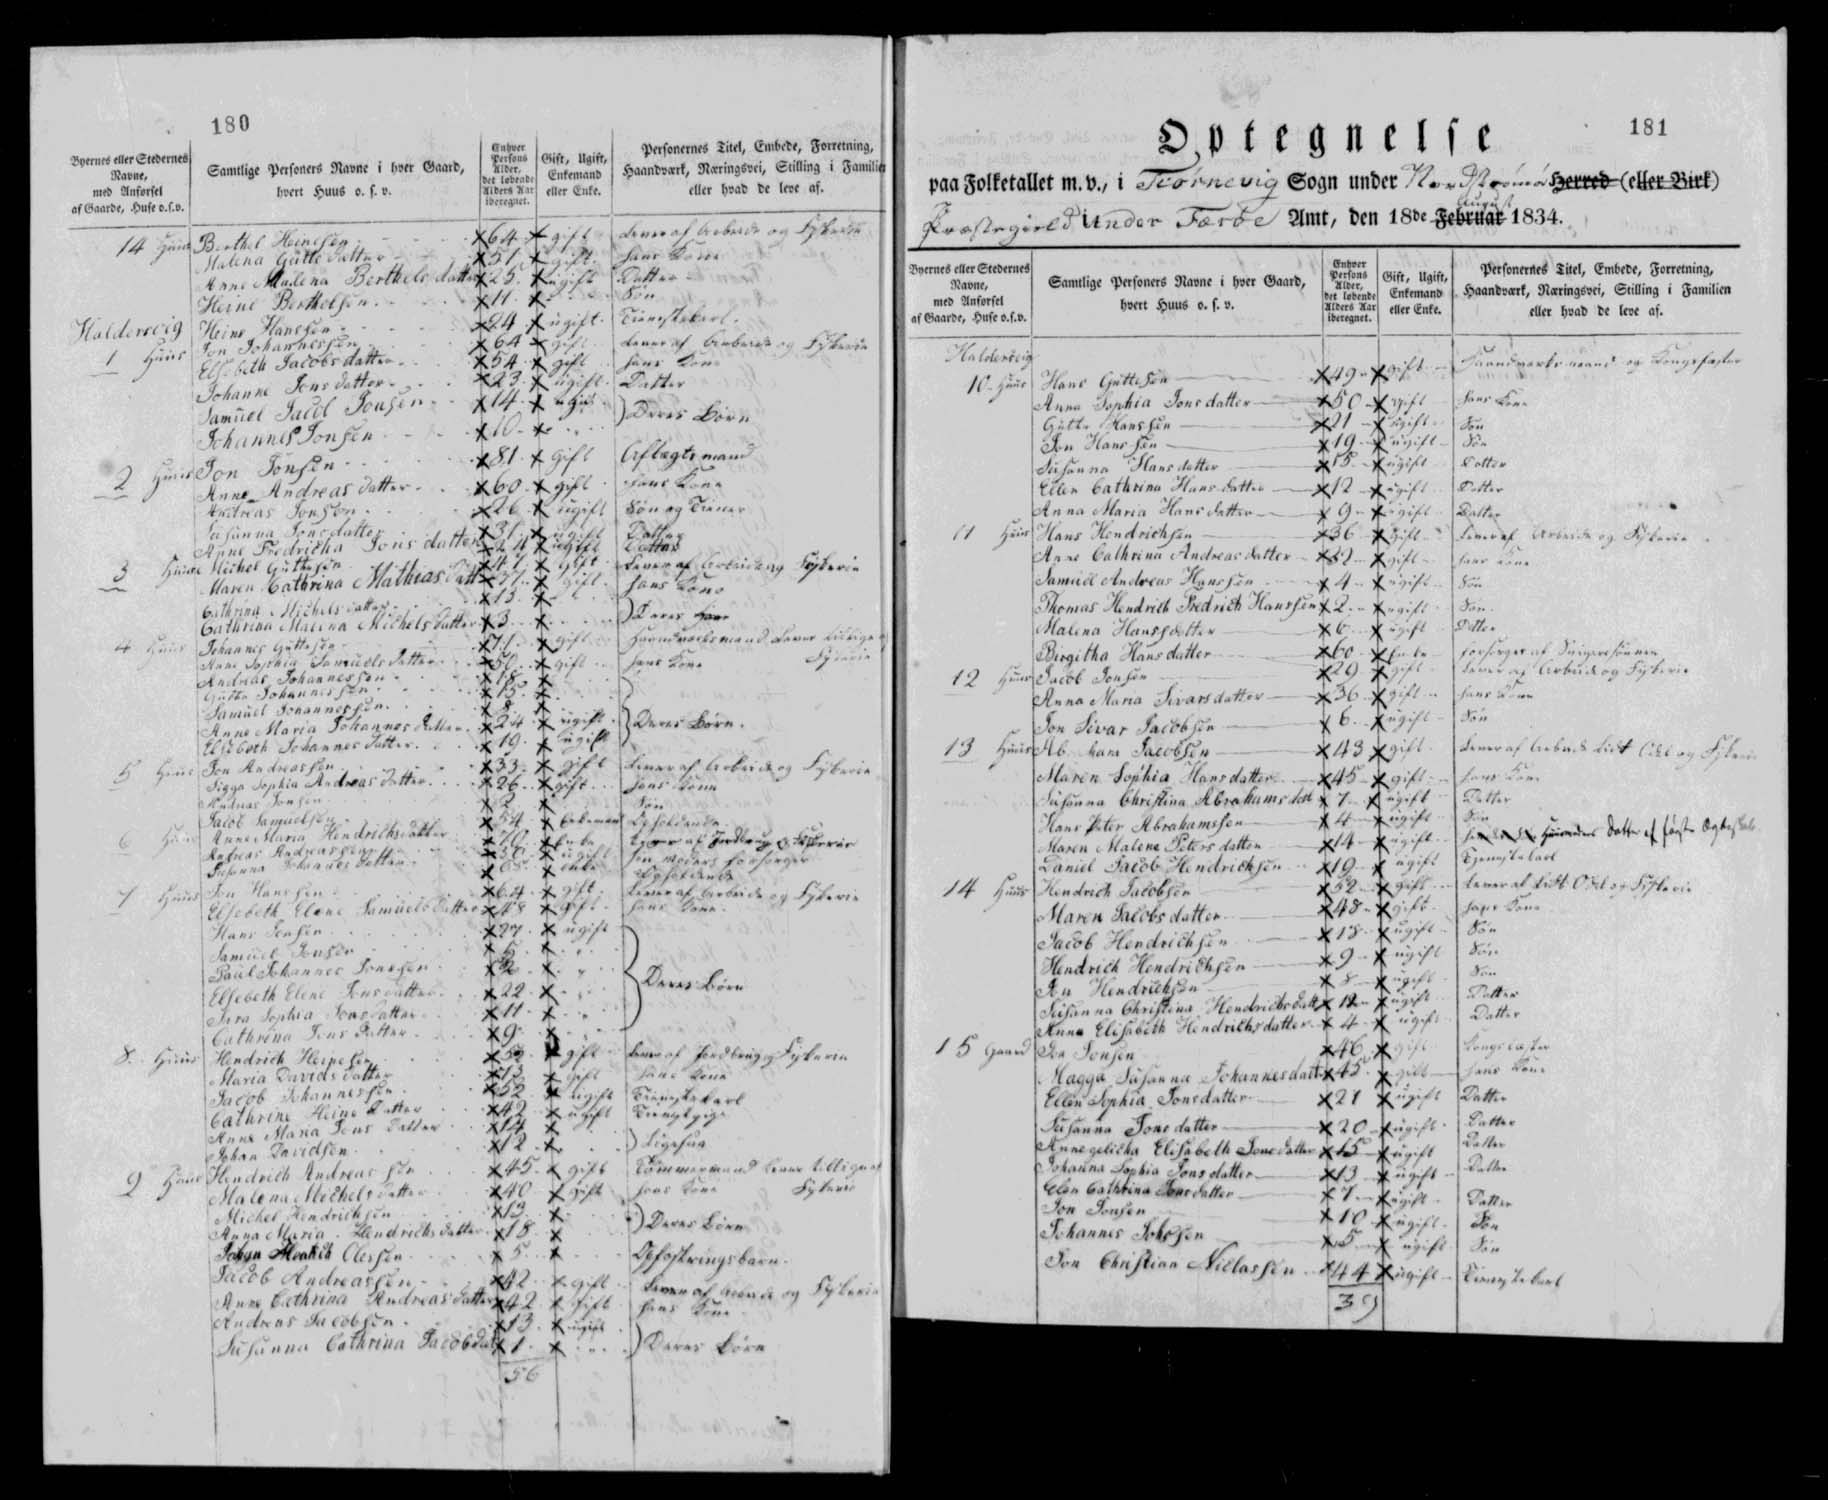 180
Byernes eller Stedernes Navne, med Anførsel af Gaarde, Huse o.s.v.
Samtlige Personers Navne i hver Gaard, hvert Huus o. s. v.
Enhver Persons Alder, det løbende Alders Aar iberegnet.
Gift, Ugift, Enkemand eller Enke.
Personernes Titel, Embede, Forretning, Haandværk, Næringsvei, Stilling i Familien eller hvad de leve af.
14 Huus Berthel Heinesen 64 gift Lever af Arbeide og Fiskerie
Malena Gutte datter 51 gift hans Kone
Anne Malena Berthels datter 25 ugift Datter
Heine Berthelsen 11 Søn
Heine Hanssen 24 ugift Tienestekarl
Haldersvig
1 Huus Jon Johannessen 64 gift Lever af Arbeide og Fiskerie
Elsebeth Jacobs datter 54 gift hans Kone
Johanne Jons datter 23 ugift Datter
Samuel Jacob Jonsen 14 ugift } Deres Børn
Johannes Jonsen 10
2 Huus Jon Jonsen 81 gift Aftægtsmand
Anne Andreas datter 60 gift hans Kone
Andreas Jonsen 26 ugift Søn og Tiener
Susanna Jons datter 31 ugift Datter
Anne Fredricka Jons datter 24 ugift Datter
3 Huus Michel Guttesen 47 gift Lever af Arbeide og Fiskerie
Maren Cathrina Mathias datt 37 gift hans Kone
Cathrina Michels datter 13
Cathrina Malena Michels datter 3 } Deres
4 Huus Johannes Guttesen 71 gift Haandværksmand Lever tillige
Anne Sophia Samuels datter 50 gift hans Kone Fiskerie
Andreas Johannessen 18
Gutte Johannessen 15
Samuel Johannessen 8
Anne Maria Johannes datter 24 ugift } Deres Børn
Elsebeth Johannes datter 19 ugift
5 Huus Jon Andreassen 33 gift Lever af Arbeide og Fiskerie
Sigga Sophia Andreas datter 26 gift hans Kone
Andreas Jonsen 2 Søn
Jacob Samuelsen 54 Enkemand
6 Huus Anne Maria Hendrichsdatter 70 Enke
Andreas Andreassen ugift
Susanna Johannes datter 65 Enke
7 Huus Jon Hanssen 64 gift Lever af Arbeide og Fiskerie
Elsebeth Elene Samuels datter 48 gift hans Kone
Hans Jonsen 27 ugift
Samuel Jonsen 5
Paul Johannes Jonsen 2
Elsebeth Elene Jons datter 22 } Deres Børn
Sara Sophia Jons datter 11
Cathrina Jons datter 9
8 Huus Hendrich Heinesen 59 gift Lever af Jordbrug og Fiskerie
Maria Davids datter gift hans Kone
Jacob Johannessen 52 ugift Tienestekarl
Cathrine Heine datter 42 ugift Tienestpige
Anne Maria Jons datter 14
Johan Davidsen 12 } Ligesaa
9 Huus Hendrich Andreassen 45 gift Tømmermand Lever tillige af
Malena Michels datter 40 gift hans Kone Fiskerie
Michel Hendrichsen 13
Anna Maria Hendrichs datter 18 } Deres Børn
Olessen 5 Opfostringsbarn
Jacob Andreassen 42 gift Lever af Arbeide og Fiskerie
Anne Cathrina Andreas datter 42 gift hans Kone
Andreas Jacobsen 13 ugift
Susanna Cathrina Jacobs dat 1 } Deres Børn
56
181
Optegnelse
paa Folketallet m. v., i Tiørnevig Sogn under Nordstrømø Herred (eller Birk)
Præstegield under Færøe Amt, den 18de Februar August 1834.
Byernes eller Stedernes Navne, med Anførsel af Gaarde, Huse o.s.v.
Samtlige Personers Navne i hver Gaard, hvert Huus o. s. v.
Enhver Persons Alder, det løbende Alders Aar iberegnet.
Gift, Ugift, Enkemand eller Enke.
Personernes Titel, Embede, Forretning, Haandværk, Næringsvei, Stilling i Familien eller hvad de leve af.
Haldersvig
10 Huus Hans Guttesen 49 gift Haandværksmand og Kongsfæster
Anna Sophia Jons datter 50 gift hans Kone
Gutte Hanssen 21 ugift Søn
Jon Hanssen 19 ugift Søn
Susanna Hans datter 15 ugift Datter
Ellen Cathrina Hans datter 12 ugift Datter
Anna Maria Hans datter 9 ugift Datter
11 Huus Hans Hendrichsen 36 gift Lever af Arbeide og Fiskerie
Anne Cathrina Andreas datter 32 gift hans Kone
Samuel Andreas Hanssen 4 ugift Søn
Thomas Hendrich Fredrich Hanssen 2 ugift Søn
Malena Hanssdatter 6 ugift Datter
Birgitha Hans datter 60 Enke forsørges af Svigersønnen
12 Huus Jacob Jonsen 29 gift Lever af Arbeide og Fiskerie
Anna Maria Sivars datter 36 gift hans Kone
Jon Sivar Jacobsen 6 ugift Søn
13 Huus Abraham Jacobsen 43 gift Lever af Arbeide lidt Odel og Fiskerie
Maren Sophia Hans datter 45 gift hans Kone
Susanna Christina Abrahams datt 7 ugift Datter
Hans Peter Abrahamssen 4 ugift Søn
Maren Malene Peters datter 14 ugift Huusmoders Datter af første Ægteskab
Daniel Jacob Hendrichsen 19 ugift Tjenestekarl
14 Huus Hendrich Jacobsen 52 gift Lever af lidt Odel og Fiskerie
Maren Jacobs datter 48 gift hans Kone
Jacob Hendrichsen 18 ugift Søn
Hendrich Hendrichsen 9 ugift Søn
Jon Hendrichsen 8 ugift Søn
Susanna Christina Hendrichs datt 12 ugift Datter
Anna Elisabeth Hendrichs datter 4 ugift Datter
15 Gaard Jon Jonsen 46 gift Kongsfæster
Magga Susanna Johannes datt 45 gift hans Kone
Ellen Sophia Jons datter 21 ugift Datter
Susanna Jons datter 20 ugift Datter
Annegelicka Elisabeth Jons datter 15 ugift Datter
Johanna Sophia Jons datter 13 ugift Datter
Elen Cathrina Jons datter 7 ugift Datter
Jon Jonsen 10 ugift Søn
Johannes Johssen 5 ugift Søn
Jon Christian Niclassen 44 ugift Tienestekarl
39